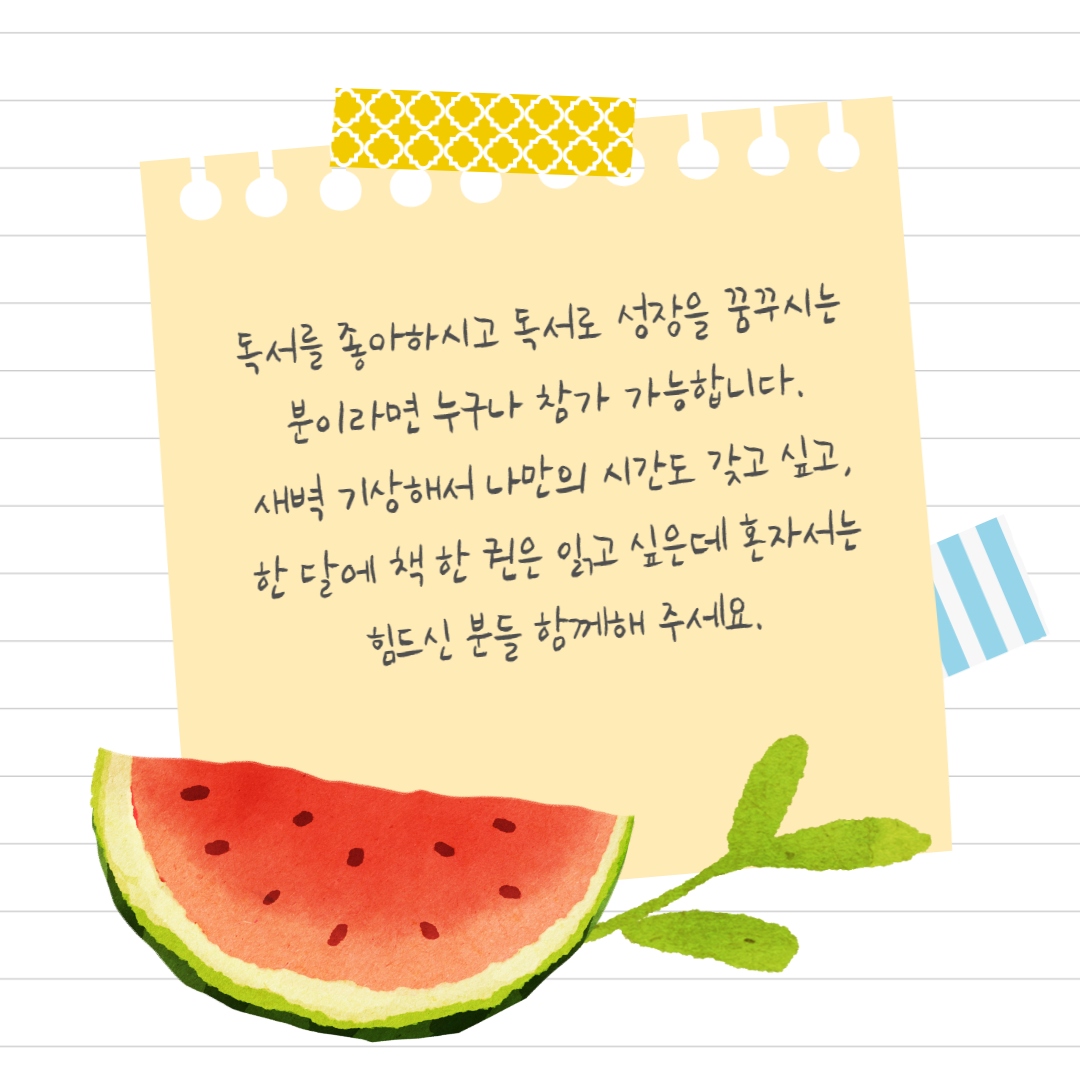 독서를 좋아하시고 독서로 성장을 꿈꾸시는
분이라면 누구나 참가 가능합니다.
새벽 기상해서 나만의 시간도 갖고 싶고,
한 달에 책 한 권은 읽고 싶은데 혼자서는
힘드신 분들 함께해 주세요.